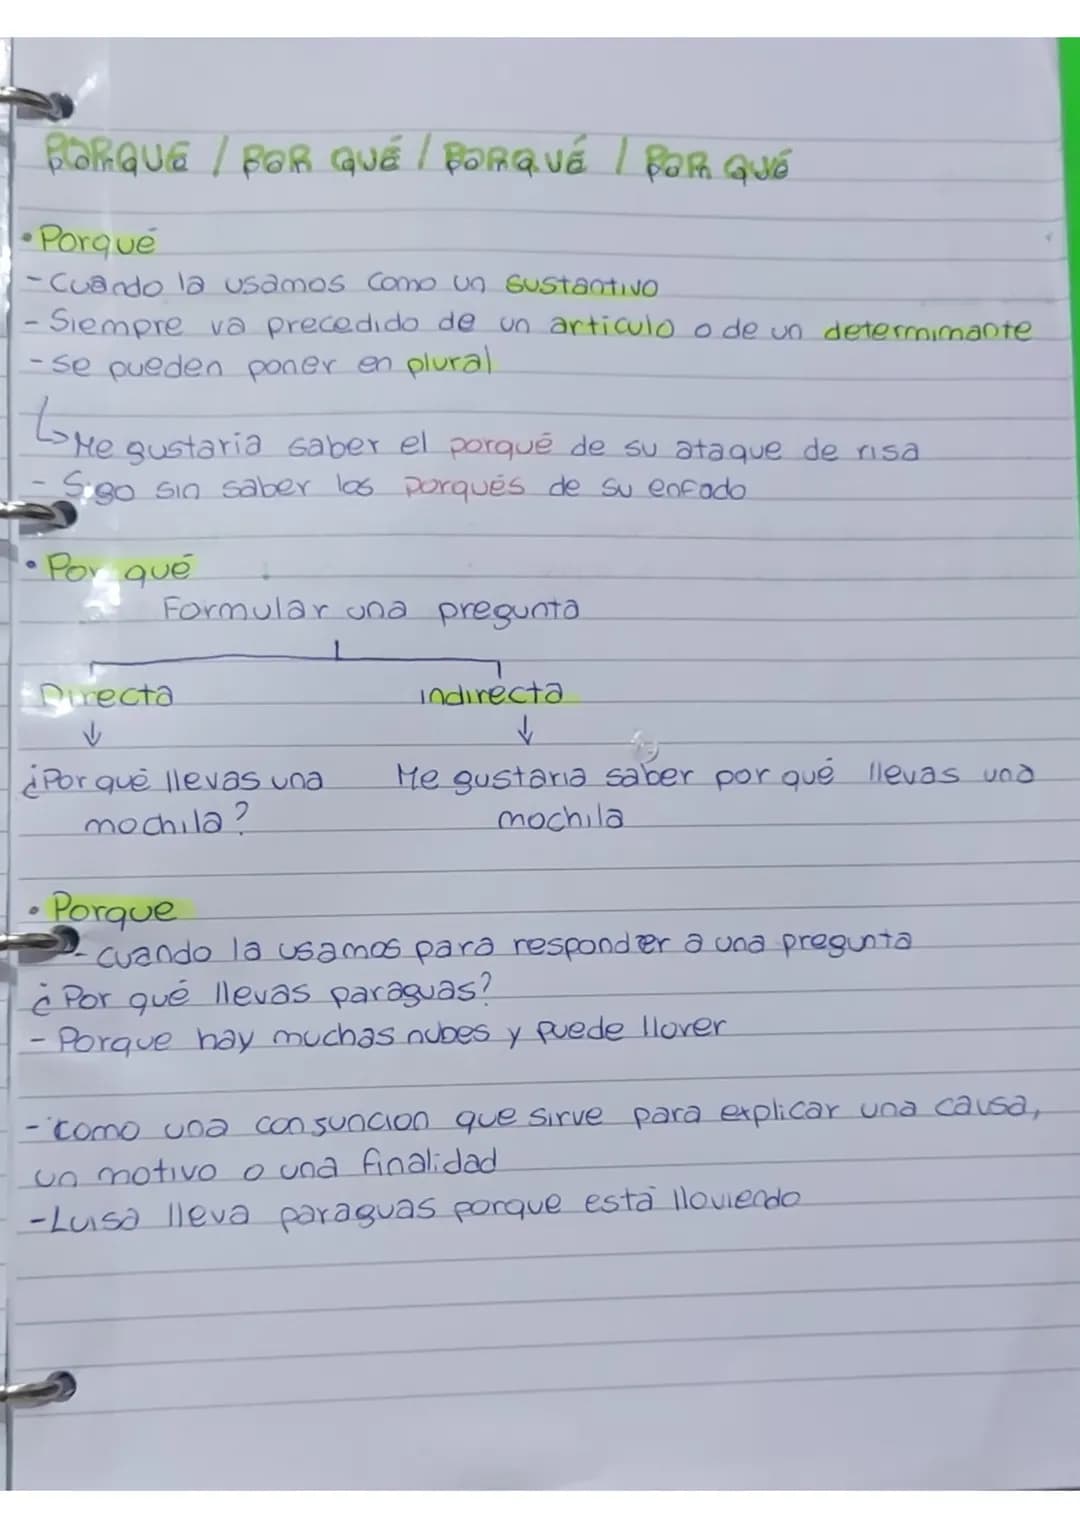 PORQUE / POR QUÉ / PORQUÉ / POR QUÉ
• Porqué
- Cuando la usamos como un sustantivo
- Siempre va precedido de un articulo o de un determimante
- se pueden poner en plural
↳ Me gustaria saber el porqué de su ataque de risa
- Sigo sin saber los porqués de su enfado
• Por qué
Formular una pregunta
Directa indirecta
↓ ↓
¿Por qué llevas una Me gustaria saber por qué llevas una
mochila? mochila
• Porque
- cuando la usamos para responder a una pregunta
¿Por qué llevas paraguas?
- Porque hay muchas nubes y puede llover
- como una consuncion que sirve para explicar una causa,
un motivo o una finalidad
- Luisa lleva paraguas porque está lloviendo